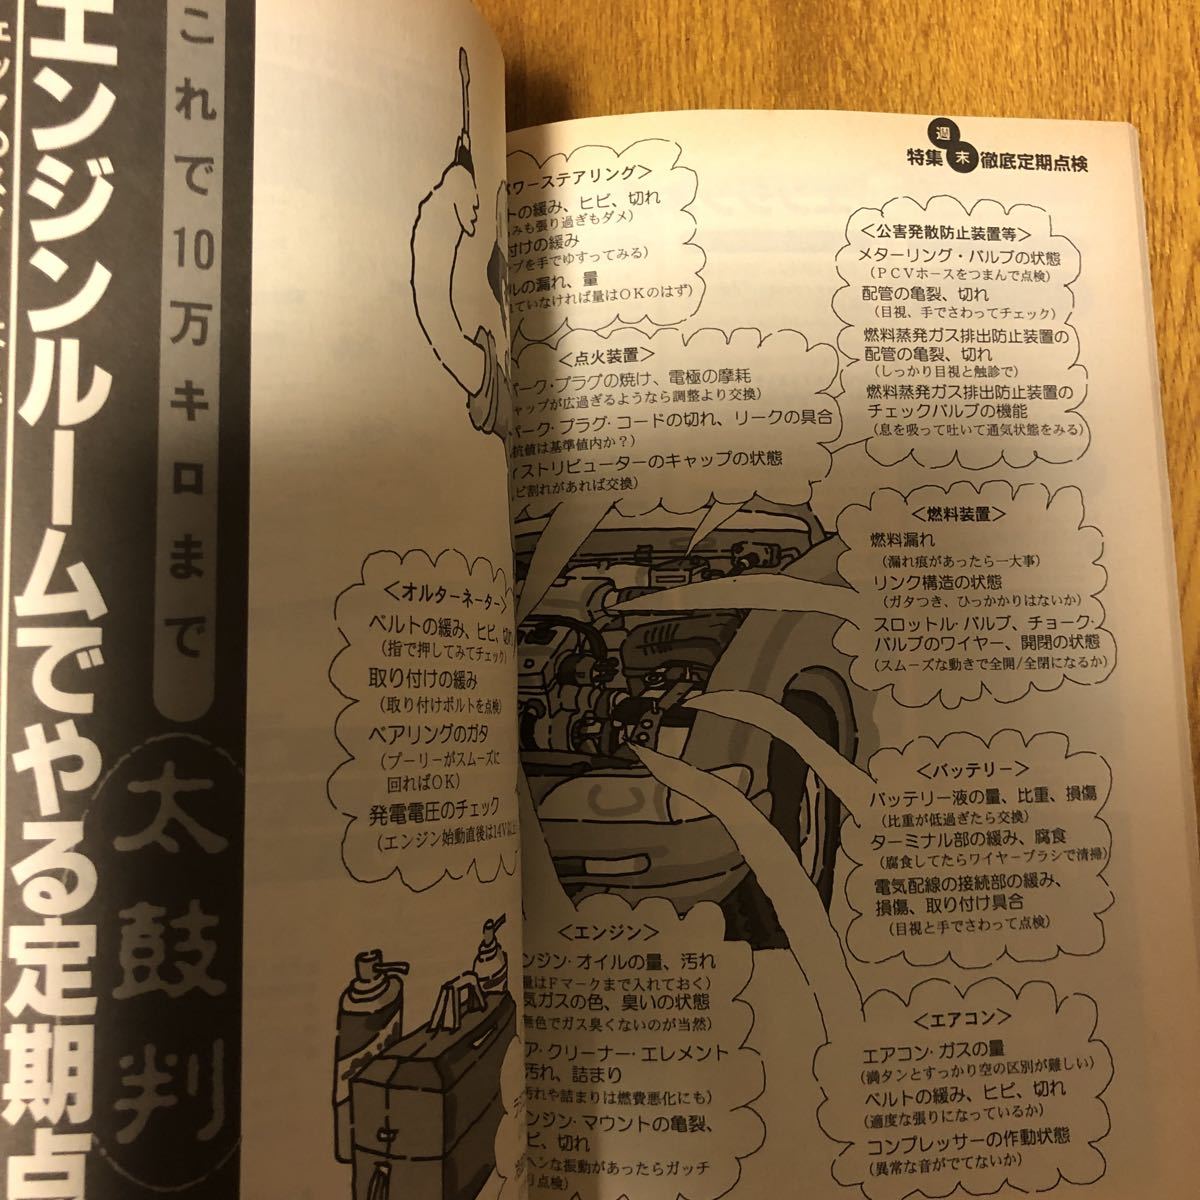 これで10万キロまで
太鼓判
エンジンルームでやる定期点
特集 週末 徹底定期点検
ワーステアリング＞
トの緩み、ヒビ、切れ
みも張り過ぎもダメ）
付けの緩み
プを手でゆすってみる）
ルの漏れ、量
ていなければ量はOKのはず）
＜点火装置＞
パーク・プラグの焼け、電極の摩耗
ャップが広過ぎるようなら調整より交換）
パーク・プラグ・コードの切れ、リークの具合
抗値は基準値内か？）
ィストリビューターのキャップの状態
ビ割れがあれば交換）
＜公害発散防止装置等＞
メターリング・バルブの状態
（ＰＣＶホースをつまんで点検）
配管の亀裂、切れ
（目視、手でさわってチェック）
燃料蒸発ガス排出防止装置の
配管の亀裂、切れ
（しっかり目視と触診で）
燃料蒸発ガス排出防止装置の
チェックバルブの機能
（息を吸って吐いて通気状態をみる）
＜燃料装置＞
燃料漏れ
（漏れ痕があったら一大事）
リンク構造の状態
（ガタつき、ひっかかりはないか）
スロットル・バルブ、チョーク・
バルブのワイヤー、開閉の状態
（スムーズな動きで全開/全閉になるか）
＜オルターネーター＞
ベルトの緩み、ヒビ、切れ
（指で押してみてチェック）
取り付けの緩み
（取り付けボルトを点検）
ベアリングのガタ
（プーリーがスムーズに
回ればOK）
発電電圧のチェック
（エンジン始動直後は14V以上
＜バッテリー＞
バッテリー液の量、比重、損傷
（比重が低過ぎたら交換）
ターミナル部の緩み、腐食
（腐食してたらワイヤーブラシで清掃）
電気配線の接続部の緩み、
損傷、取り付け具合
（目視と手でさわって点検）
＜エンジン＞
ンジン・オイルの量、汚れ
量はＦマークまで入れておく）
気ガスの色、臭いの状態
無色でガス臭くないのが当然）
ア・クリーナー・エレメント
汚れ、詰まり
汚れや詰まりは燃費悪化にも）
ンジン・マウントの亀裂、
ビ、切れ
ヘンな振動があったらガッチ
リ点検）
＜エアコン＞
エアコン・ガスの量
（満タンとすっかり空の区別が難しい）
ベルトの緩み、ヒビ、切れ
（適度な張りになっているか）
コンプレッサーの作動状態
（異常な音がでてないか）